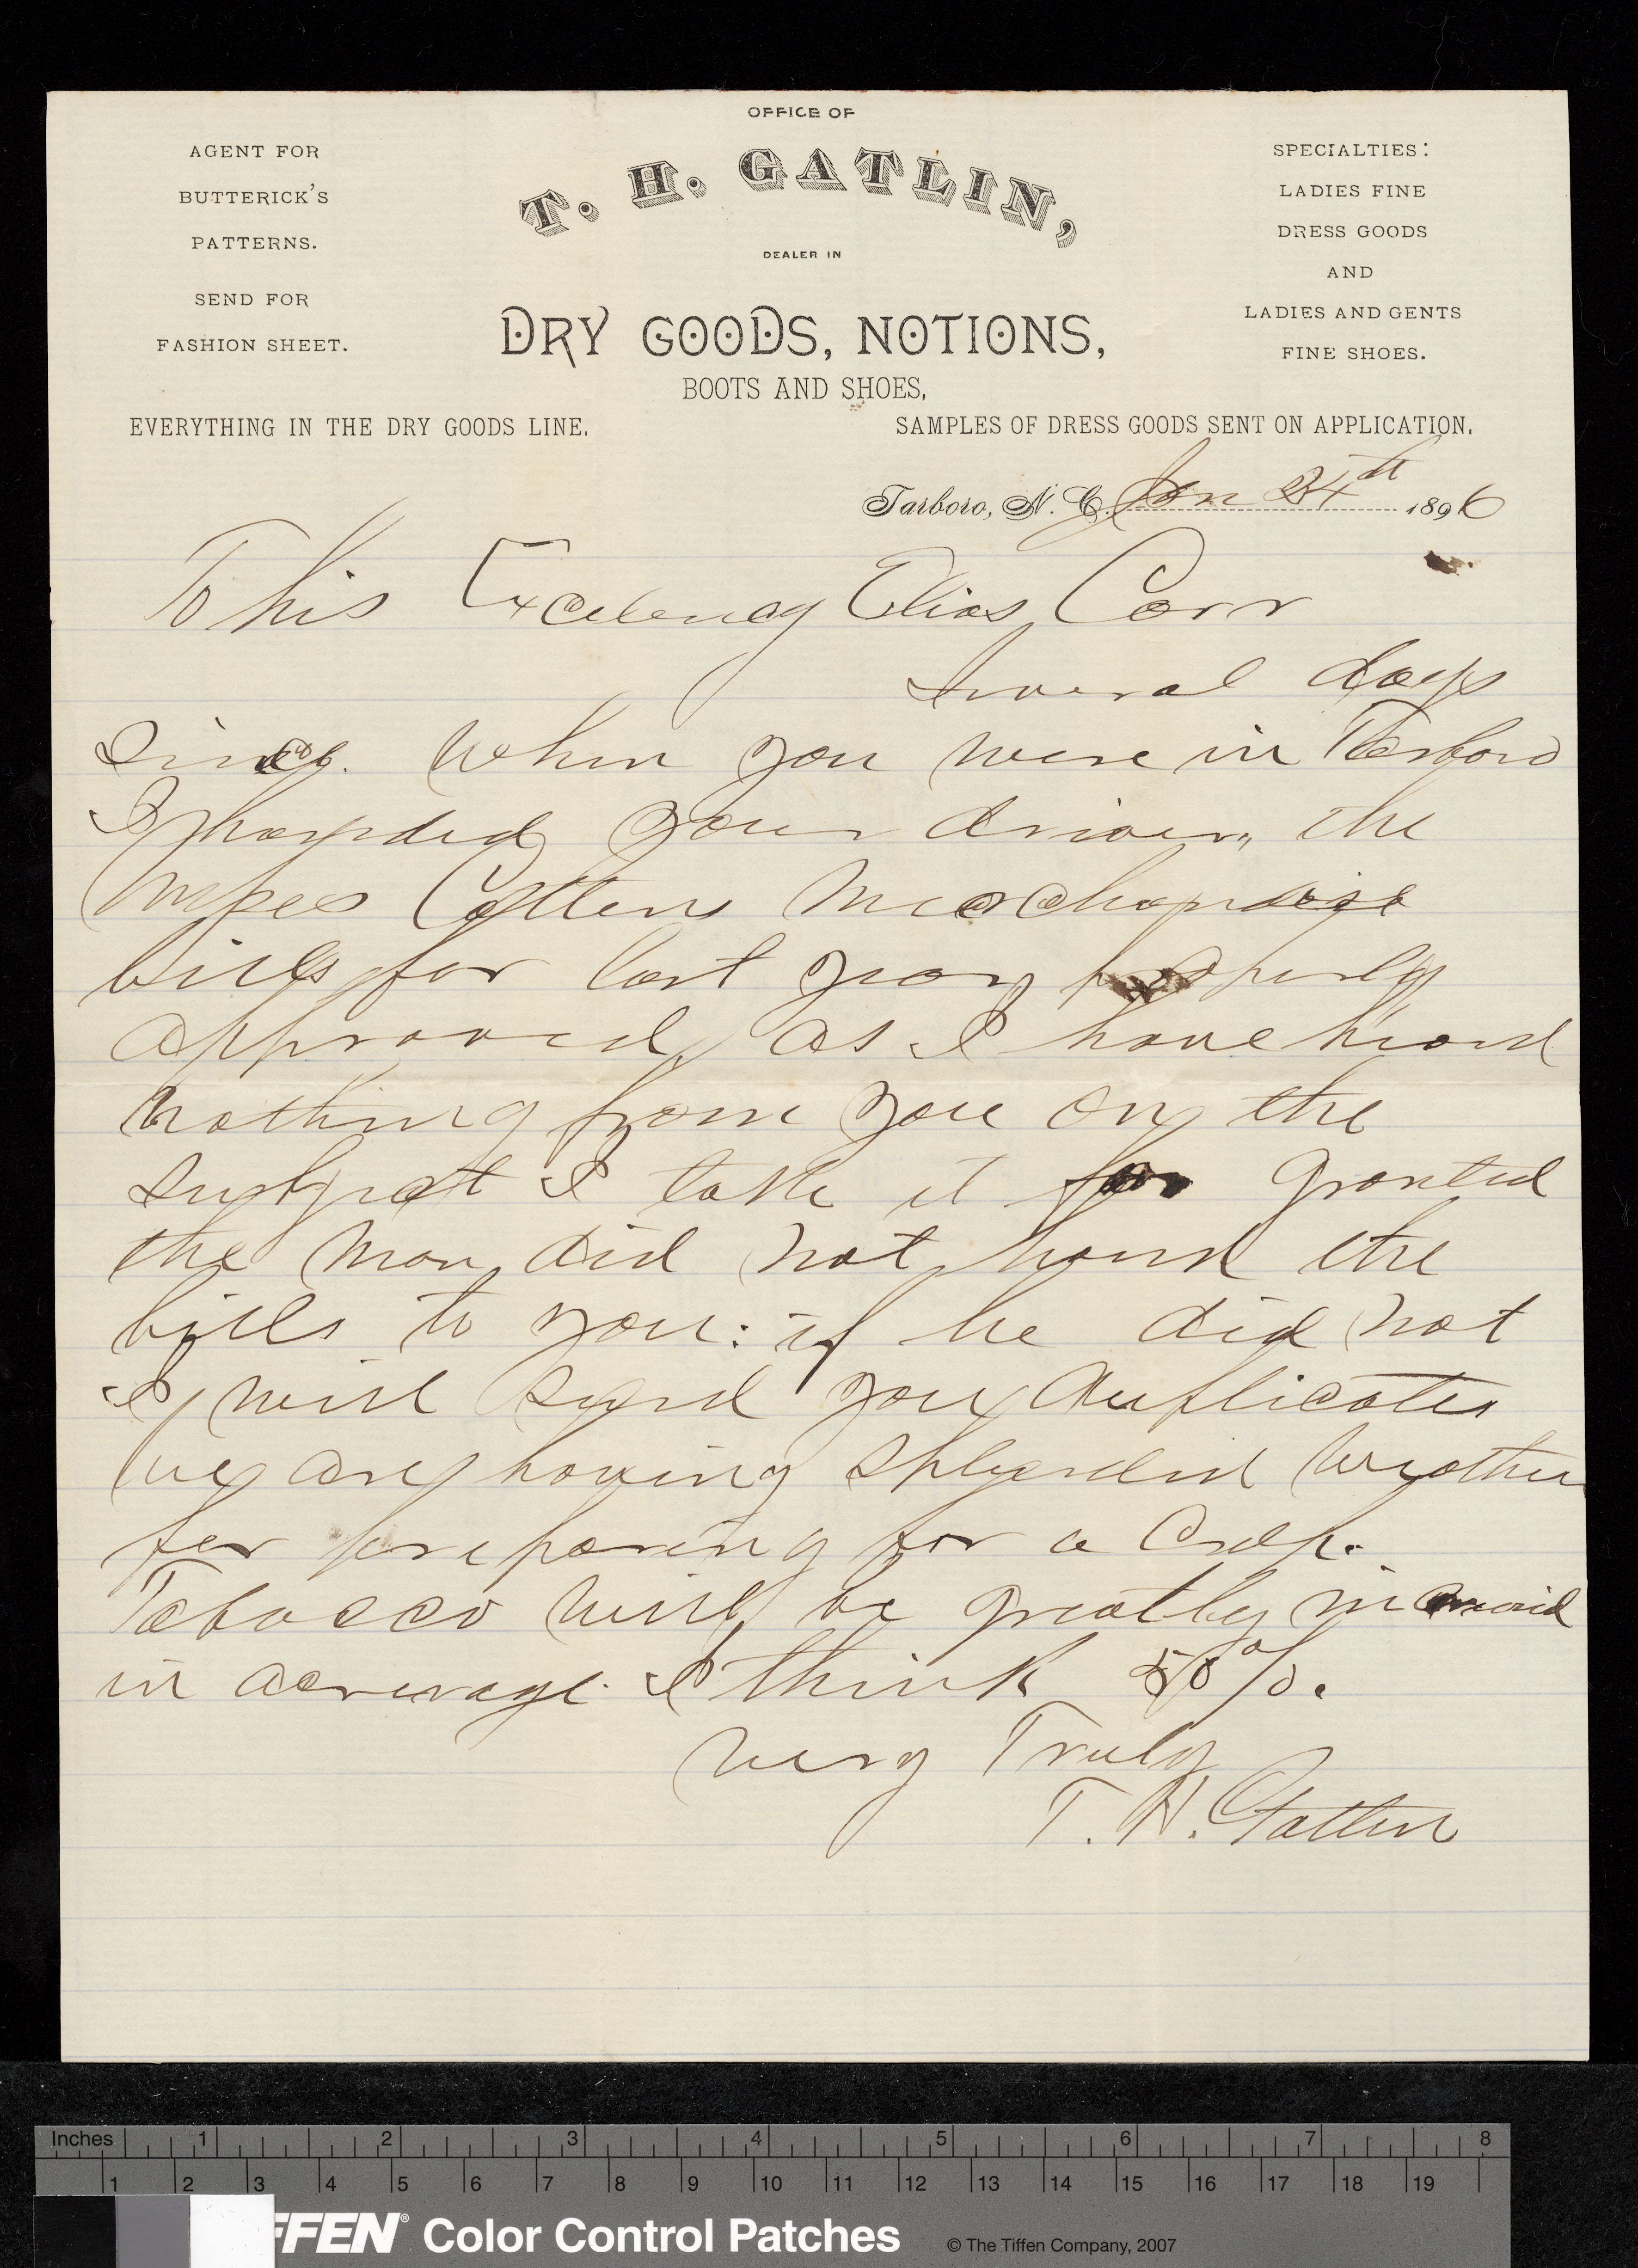 OFFICE OF
T. H. GATLIN,
DEALER IN
DRY GOODS, NOTIONS,
BOOTS AND SHOES,
AGENT FOR
BUTTERICK'S
PATTERNS.
SEND FOR
FASHION SHEET.
SPECIALTIES:
LADIES FINE
DRESS GOODS
AND
LADIES AND GENTS
FINE SHOES.
EVERYTHING IN THE DRY GOODS LINE.
SAMPLES OF DRESS GOODS SENT ON APPLICATION.
Tarboro, N. C. Jan 24th 1896
To his Excelency Elias Carr
Several days
since. When you were in Tarboro
I handed your driver, the
Cotten Merchandise
bills for last year properly
approved, as I have heard
nothing from you on the
subject I take it for granted
the man did not hand the
bills to you: if he did not
I will send you duplicates
we are having splendid weather
for preparing for a Crop.
Tobacco will be greatly
in acreage. I think 50%.
Very Truly
T. H. Gatlin
Inches 1 2 3 4 5 6 7 8
1 2 3 4 5 6 7 8 9 10 11 12 13 14 15 16 17 18 19
FFEN® Color Control Patches © The Tiffen Company, 2007